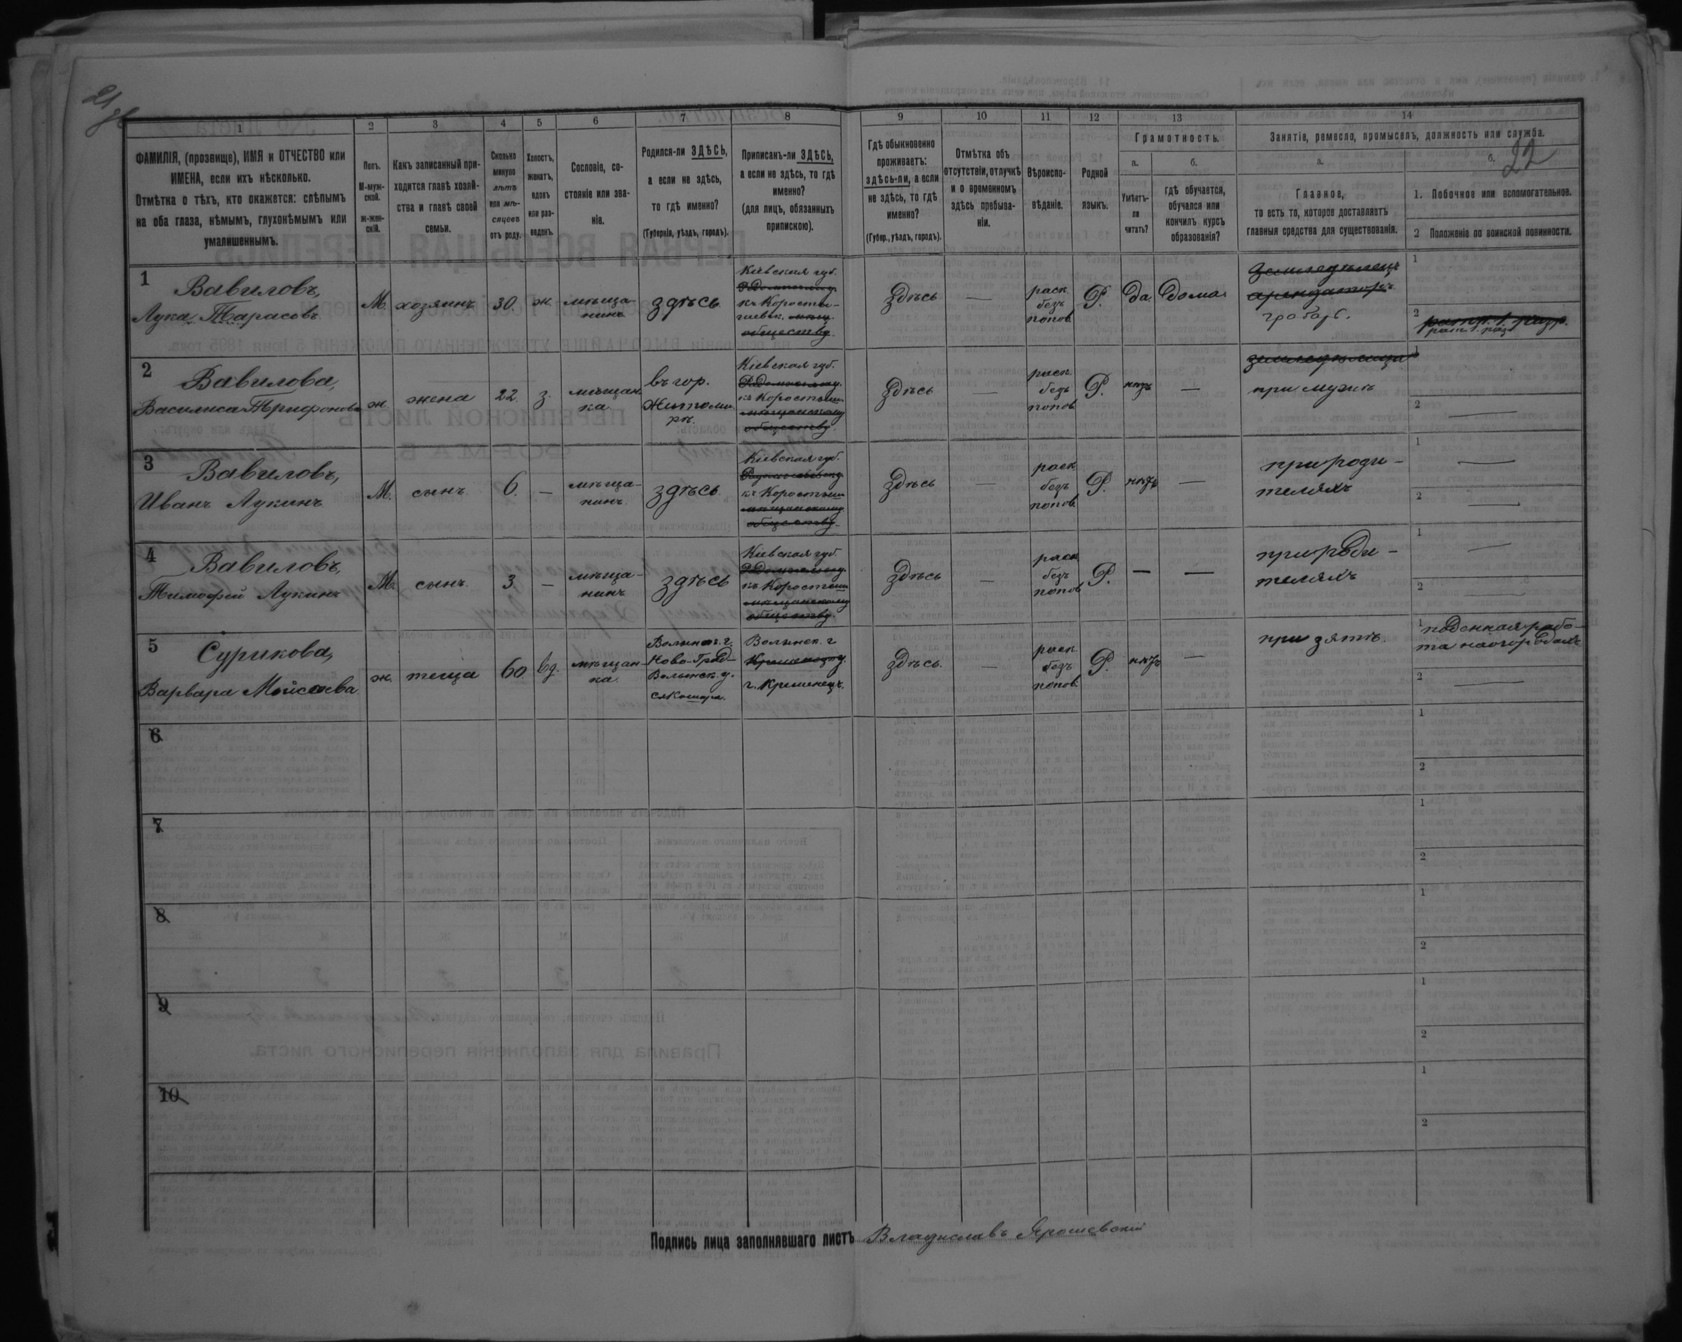 21
об
22
1
ФАМИЛІЯ, (прозвище), ИМЯ и ОТЧЕСТВО или
ИМЕНА, если ихъ нѣсколько.
Отмѣтка о тѣхъ, кто окажется: слѣпымъ
на оба глаза, нѣмымъ, глухонѣмымъ или
умалишеннымъ.
2
Полъ.
М-муж-
ской.
ж-жен-
скій.
3
Какъ записанный при-
ходится главѣ хозяй-
ства и главѣ своей
семьи.
4
Сколько
минуло
лѣтъ
или мѣ-
сяцевъ
отъ роду.
5
Холостъ,
женатъ,
вдовъ
или раз-
веденъ.
6
Сословіе, со-
стояніе или зва-
ніе.
7
Родился-ли ЗДѢСЬ,
а если не здѣсь,
то гдѣ именно?
(Губернія, уѣздъ, городъ).
8
Приписанъ-ли ЗДѢСЬ,
а если не здѣсь, то гдѣ
именно?
(для лицъ, обязанныхъ
припискою).
9
Гдѣ обыкновенно
проживаетъ:
здѣсь-ли, а если
не здѣсь, то гдѣ
именно?
(Губер., уѣздъ, городъ).
10
Отмѣтка объ
отсутствіи, отлучкѣ
и о временномъ
здѣсь пребыва-
ніи.
11
Вѣроиспо-
вѣданіе.
12
Родной
языкъ.
13
Грамотность.
а.
Умѣетъ-
ли
читать?
б.
гдѣ обучается,
обучался или
кончилъ курсъ
образованія?
14
Занятіе, ремесло, промыселъ, должность или служба.
а.
Главное,
то есть то, которое доставляетъ
главныя средства для существованія.
б.
1. Побочное или вспомогательное.
2 Положеніе по воинской повинности.
1
Вавиловъ,
Лука Тарасовъ
М.
хозяинъ
30.
ж.
мѣща-
нинъ
здѣсь
Кіевская губ.
къ Коросты-
обществу
Здѣсь
—
раск
безъ
попов
Р.
да
дома
земледѣлецъ
арендаторъ
1
2
2
Вавилова,
Василиса Трифонова
ж.
жена
22
з.
мѣщан
ка
въ гор.
Житоми-
рѣ.
Кіевская губ.
къ Коросты
мѣщанскому
обществу.
Здѣсь
—
раск
безъ
попов
Р.
нѣтъ
—
при мужѣ
1
2 —
3
Вавиловъ,
Иванъ Лукинъ
М.
сынъ
6.
—
мѣща-
нинъ.
здѣсь
Кіевская губ.
къ Коросты
мѣщанскому
обществу.
Здѣсь
—
раск
безъ
попов
Р.
нѣтъ
—
при роди-
теляхъ
1 —
2 —
4
Вавиловъ,
Тимофей Лукинъ
М.
сынъ
3
—
мѣща-
нинъ
здѣсь
Кіевская губ
къ Коросты
мѣщанскому
обществу.
Здѣсь
—
раск
безъ
попов
Р.
—
—
при роди-
теляхъ
1 —
2 —
5
Сурикова,
Варвара Мойсеева
ж.
теща
60
вд.
мѣщан-
ка
Волынск. г.
Ново-Град-
Волынск. у.
Волынск. г
г. Кременецъ.
Здѣсь.
—
раск
безъ
попов
Р.
нѣтъ
—
при зятѣ.
1 поденная рабо-
та на огородахъ
2 —
6
1
2
7
1
2
8
1
2
9
1
2
10
1
2
Подпись лица заполнявшаго листъ Владиславъ Ярошевскій